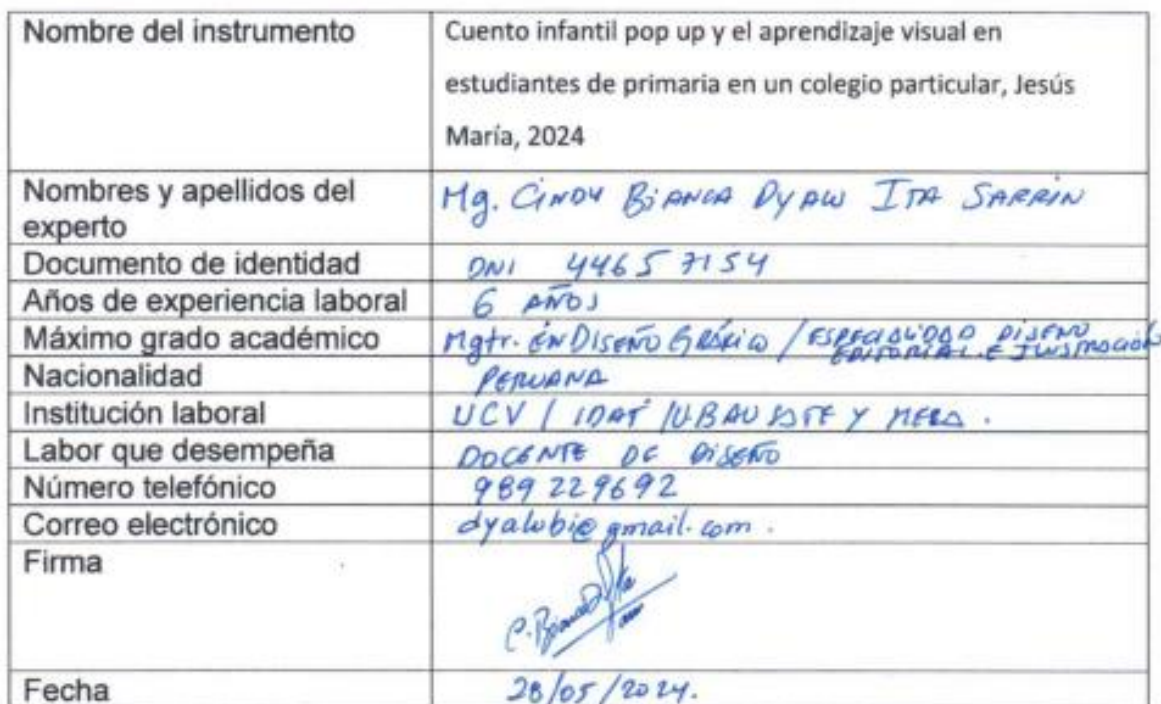 Nombre del instrumento
Cuento infantil pop up y el aprendizaje visual en
estudiantes de primaria en un colegio particular, Jesús
María, 2024
Nombres y apellidos del
experto
Mg. CINDY BIANCA DYALU ITA SARRIN
Documento de identidad
DNI 44657154
Años de experiencia laboral
6 AÑOS
Máximo grado académico
Mgtr. EN DISEÑO GRÁFICO / ESPECIALIDAD DISEÑO
EDITORIAL E ILUSTRACIÓN
Nacionalidad
PERUANA
Institución laboral
UCV / IDAT / Y
Labor que desempeña
DOCENTE DE DISEÑO
Número telefónico
989 229692
Correo electrónico
dyalubi@gmail.com.
Firma
Fecha
28/05/2024.